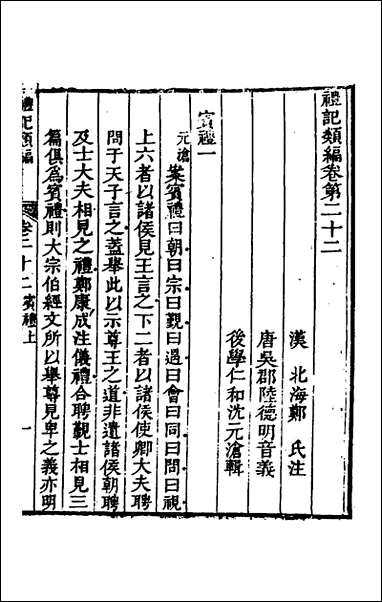 禮記類編卷第二十二
漢　北海鄭　氏注
唐吳郡陸德明音義
後學仁和沈元滄輯
賓禮一
元滄案賓禮曰朝曰宗曰覲曰遇曰會曰同曰問曰視
上六者以諸侯見王言之下二者以諸侯使卿大夫聘
問于天子言之蓋舉此以示尊王之道非遺諸侯朝聘
及士大夫相見之禮鄭康成注儀禮合聘覲士相見三
篇俱爲賓禮則大宗伯經文所以舉尊見卑之義亦明
禮記類編　卷二十二 賓禮上　一